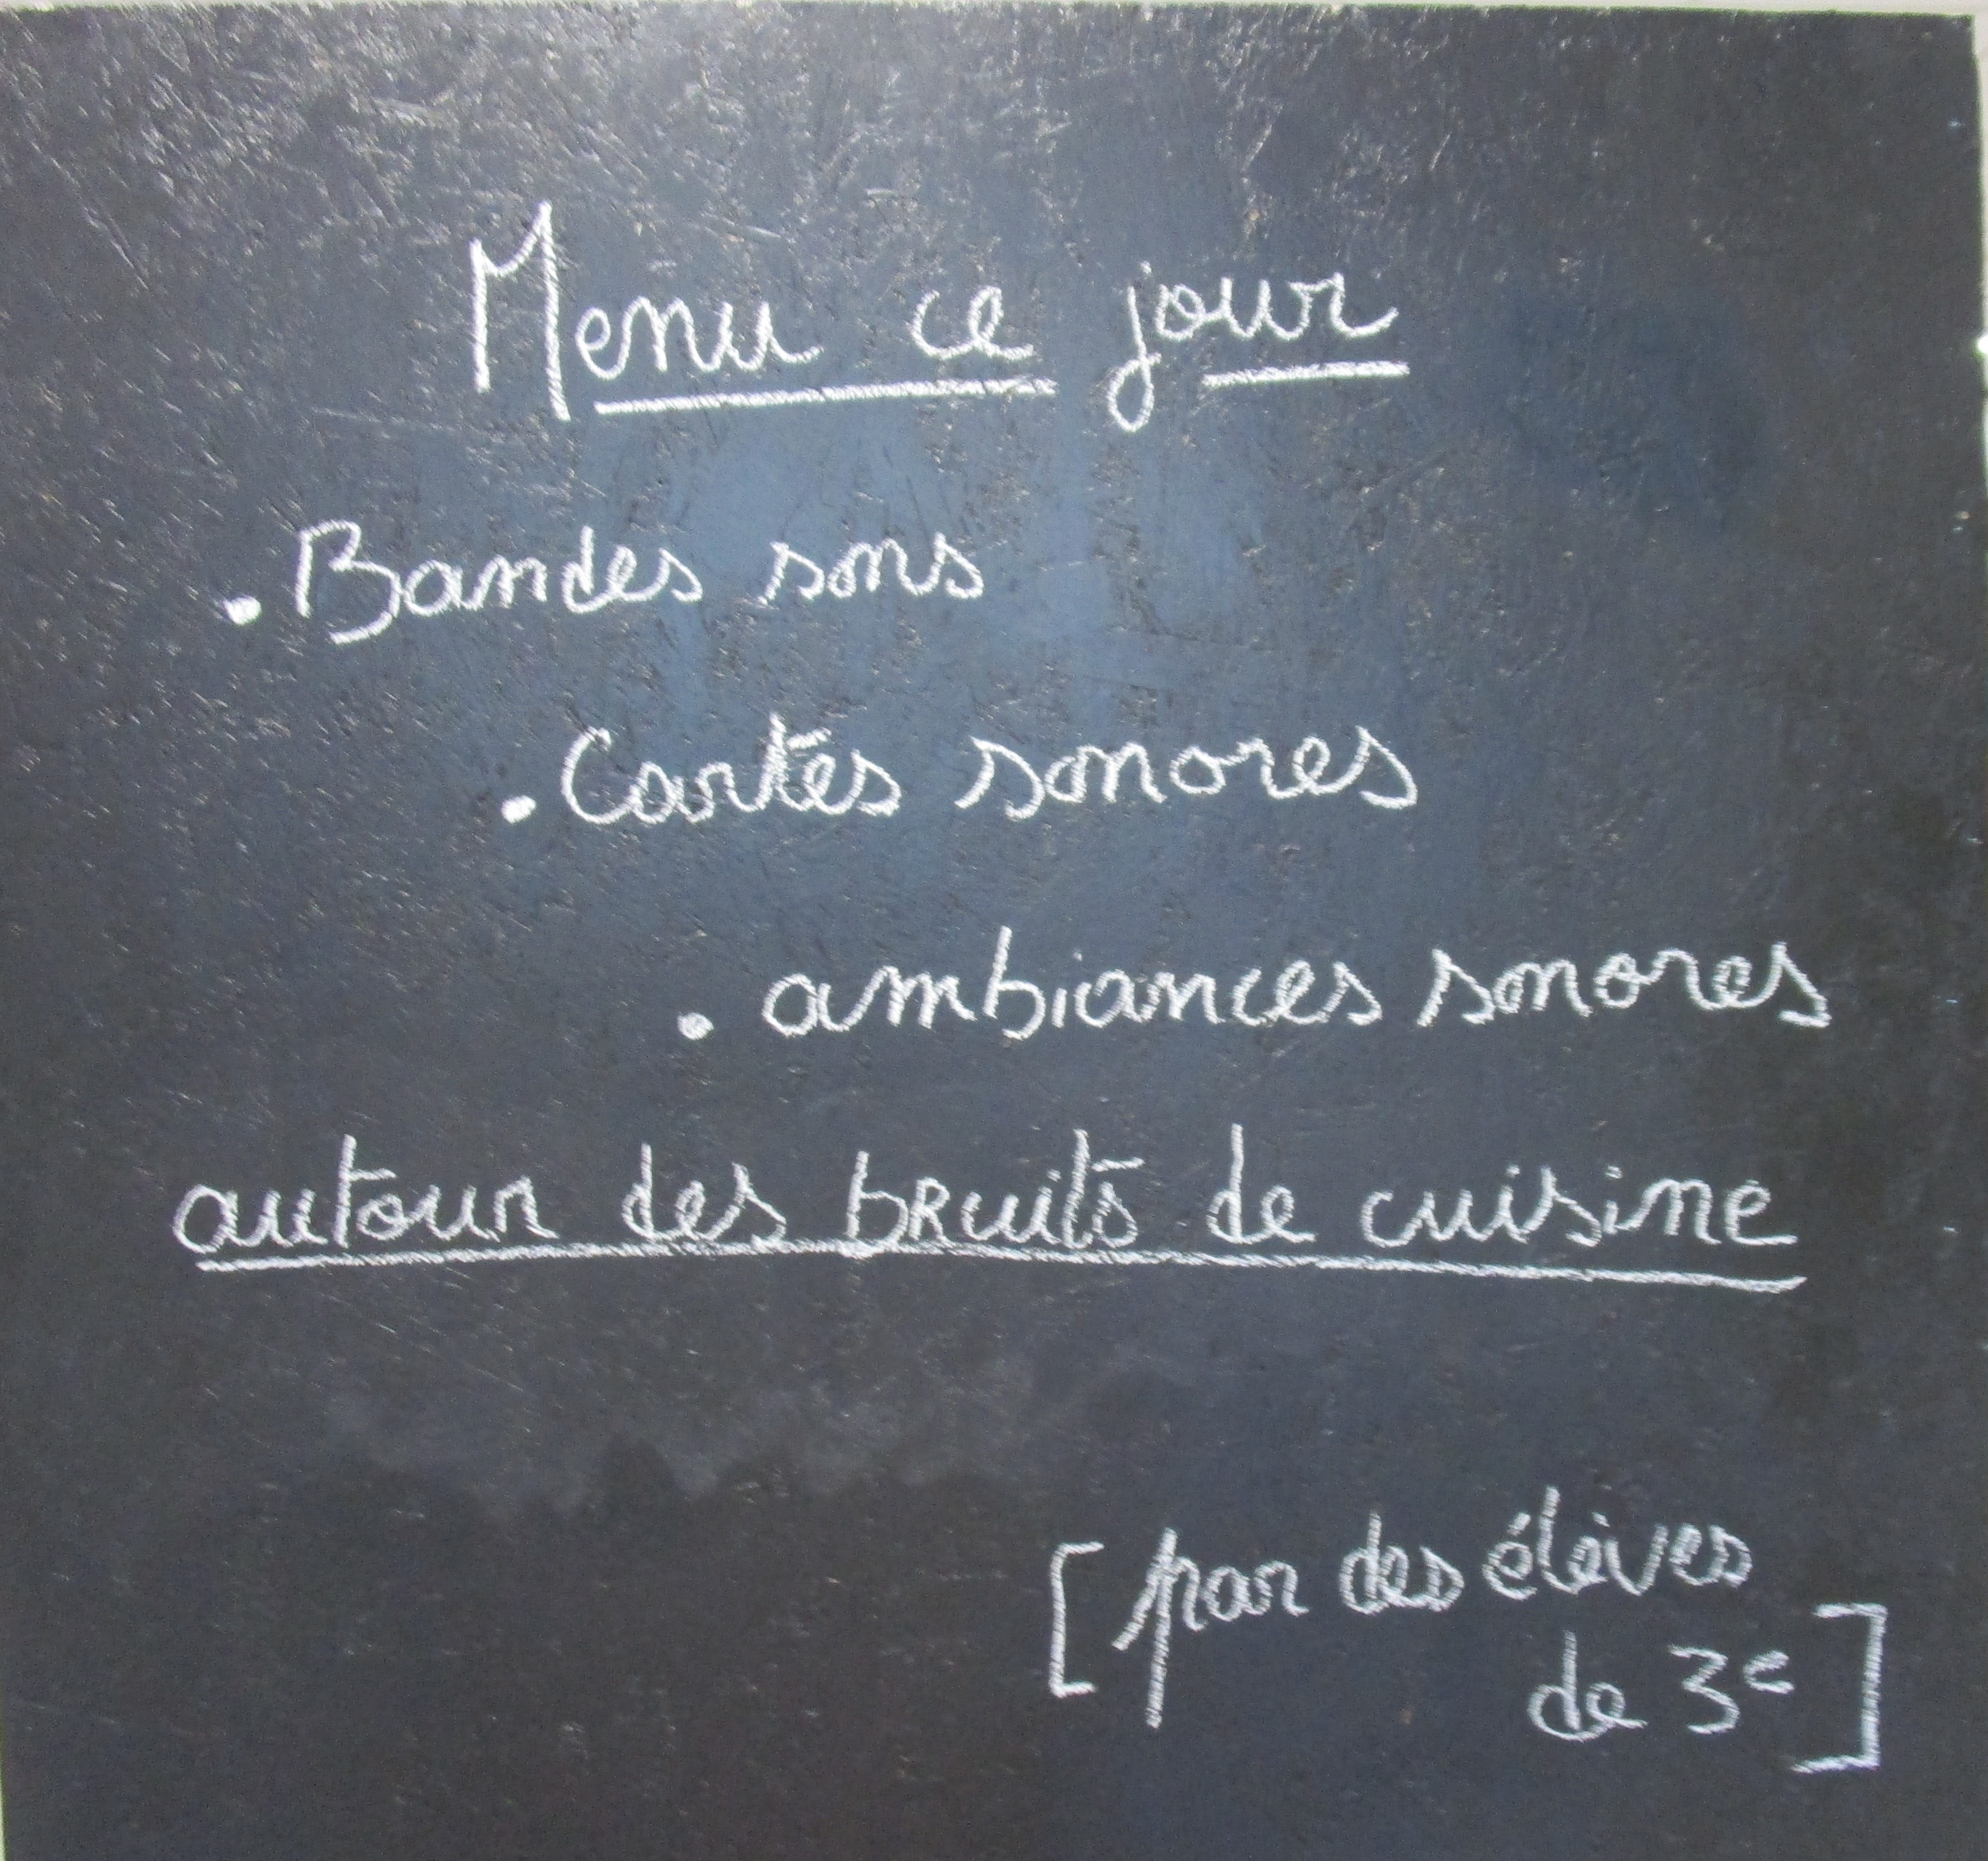 Menu ce jour
. Bandes sons
. Cartes sonores
. ambiances sonores
autour des bruits de cuisine
[ par des élèves
de 3e ]